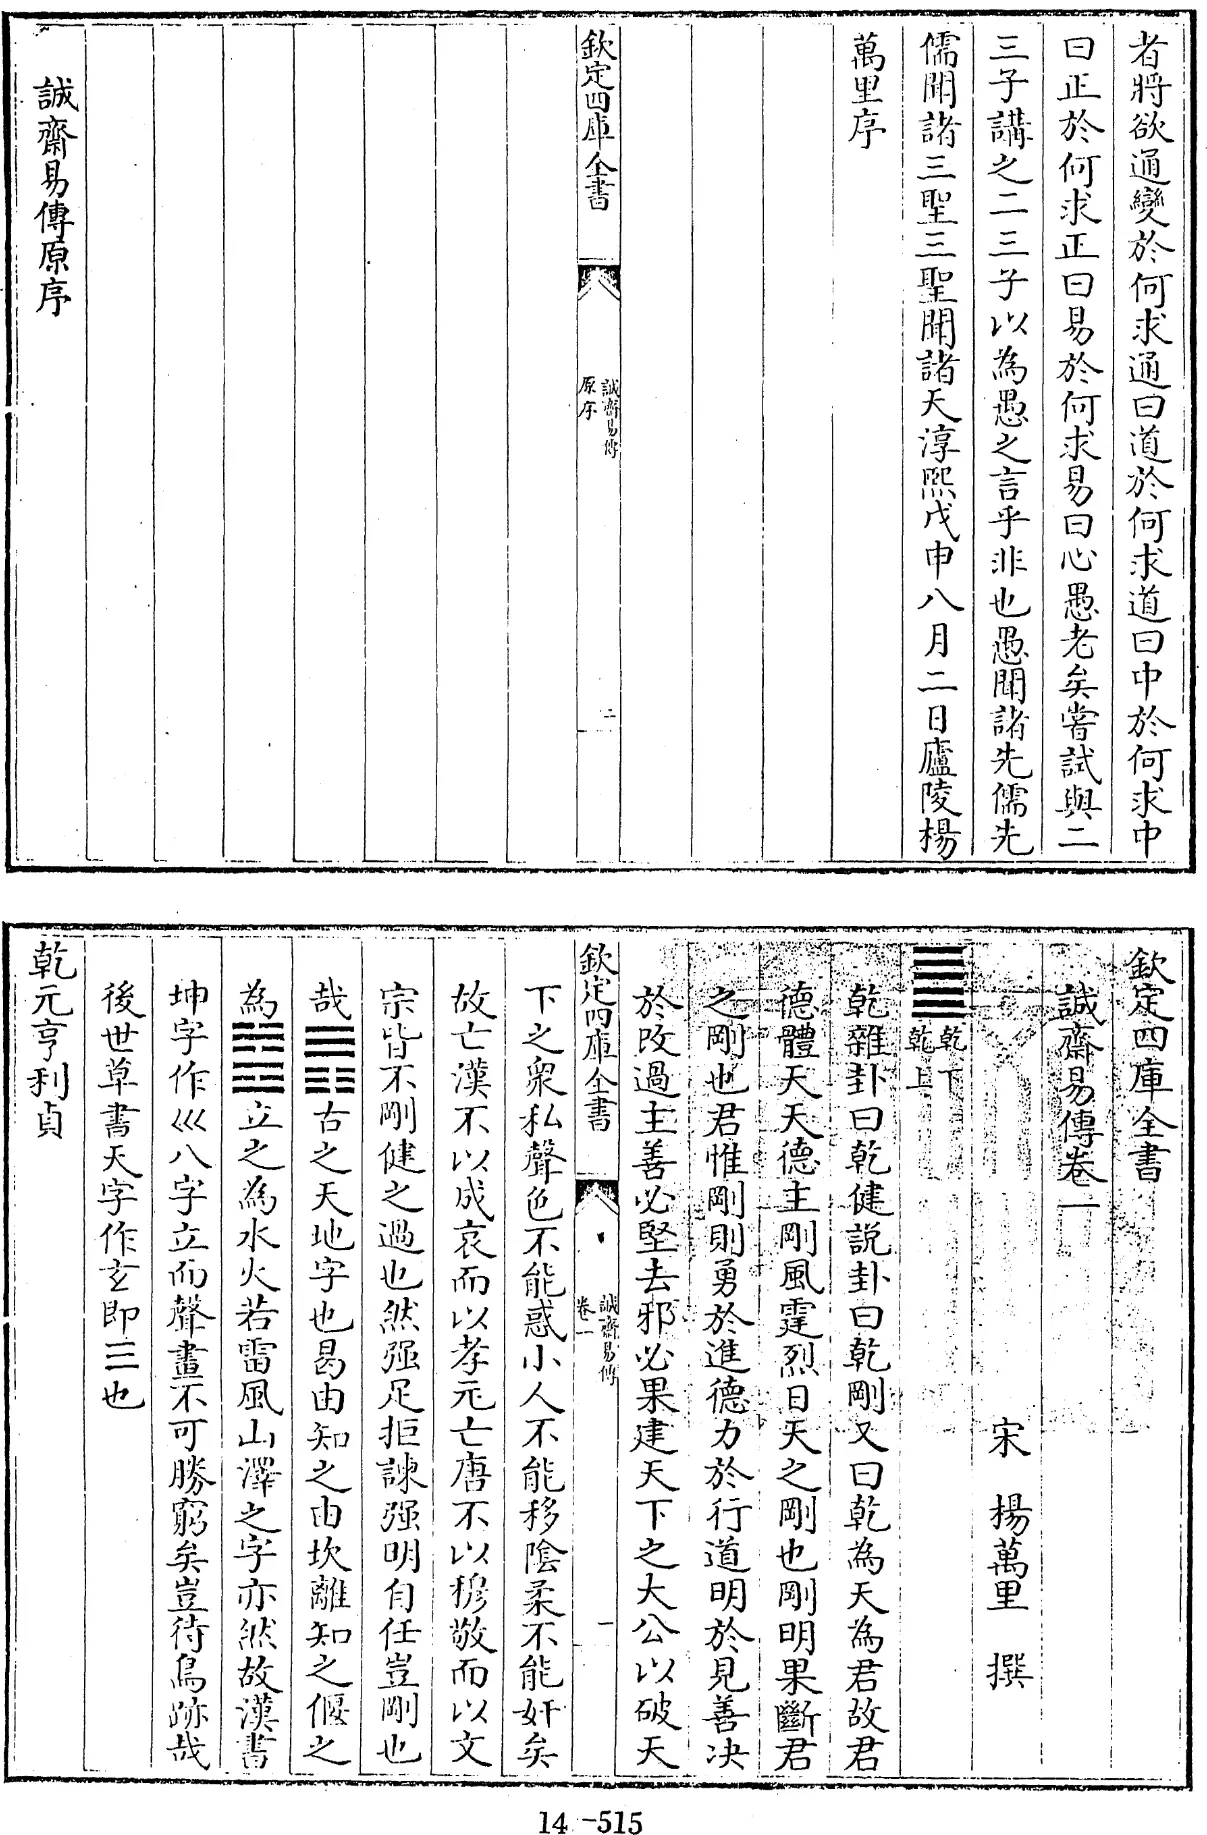 者將欲通變於何求通曰道於何求道曰中於何求中
曰正於何求正曰易於何求易曰心愚老矣嘗試與二
三子講之二三子以為愚之言乎非也愚聞諸先儒先
儒聞諸三聖三聖聞諸天淳熙戊申八月二日廬陵楊
萬里序
欽定四庫全書
誠齋易傳
原序
二
誠齋易傳原序
欽定四庫全書
誠齋易傳卷一
宋 楊萬里 撰
䷀
乾下
乾上
乾雜卦曰乾健說卦曰乾剛又曰乾為天為君故君
德體天天德主剛風霆烈日天之剛也剛明果斷君
之剛也君惟剛則勇於進德力於行道明於見善决
於改過主善必堅去邪必果建天下之大公以破天
欽定四庫全書
誠齋易傳
卷一
一
下之衆私聲色不能惑小人不能移陰柔不能奸矣
故亡漢不以成哀而以孝元亡唐不以穆敬而以文
宗皆不剛健之過也然强足拒諫强明自任豈剛也
哉☰☷古之天地字也曷由知之由坎離知之偃之
為☵☲立之為水火若雷風山澤之字亦然故漢書
坤字作巛八字立而聲畫不可勝窮矣豈待鳥跡哉
後世草書天字作𠀑即三也
乾元亨利貞
14-515